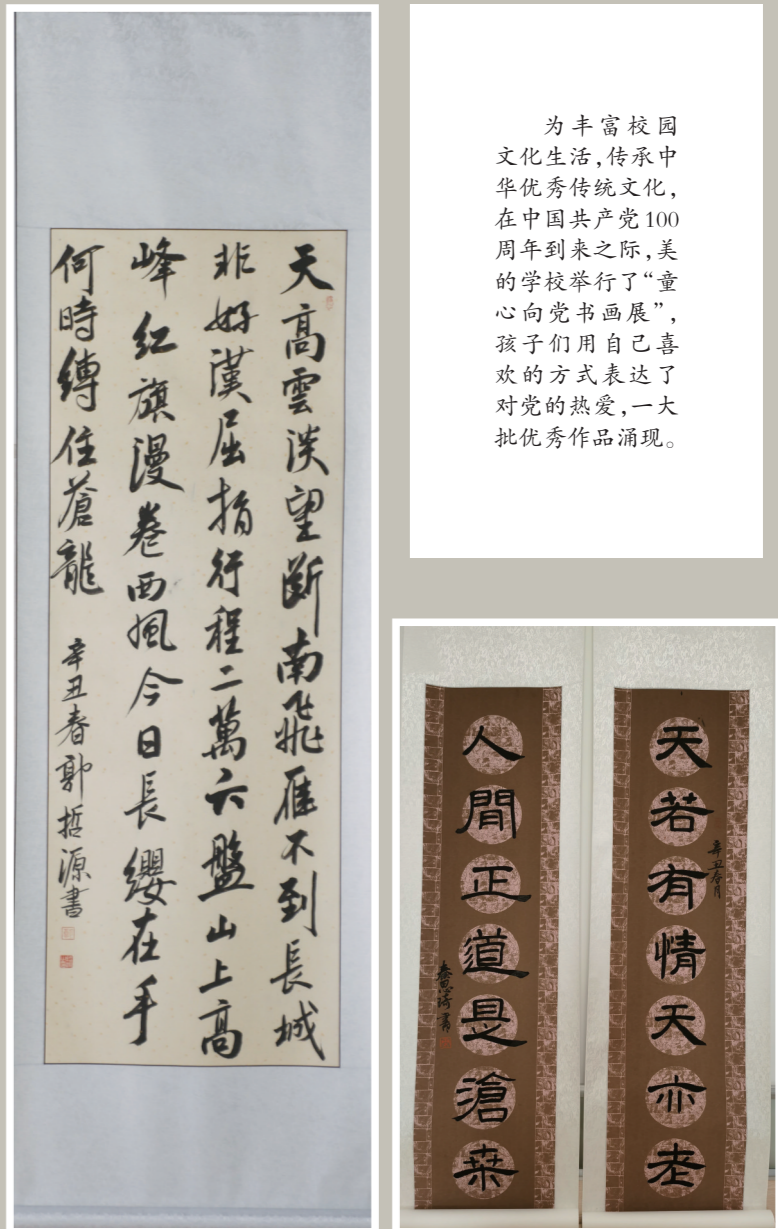 天高雲淡望斷南飛雁不到長城
非好漢屈指行程二萬六盤山上高
峰紅旗漫卷西風今日長纓在手
何時縛住蒼龍
辛丑春郭哲源書
为丰富校园
文化生活，传承中
华优秀传统文化，
在中国共产党100
周年到来之际，美
的学校举行了“童
心向党书画展”，
孩子们用自己喜
欢的方式表达了
对党的热爱，一大
批优秀作品涌现。
天若有情天亦老
辛丑春月
人間正道是滄桑
書